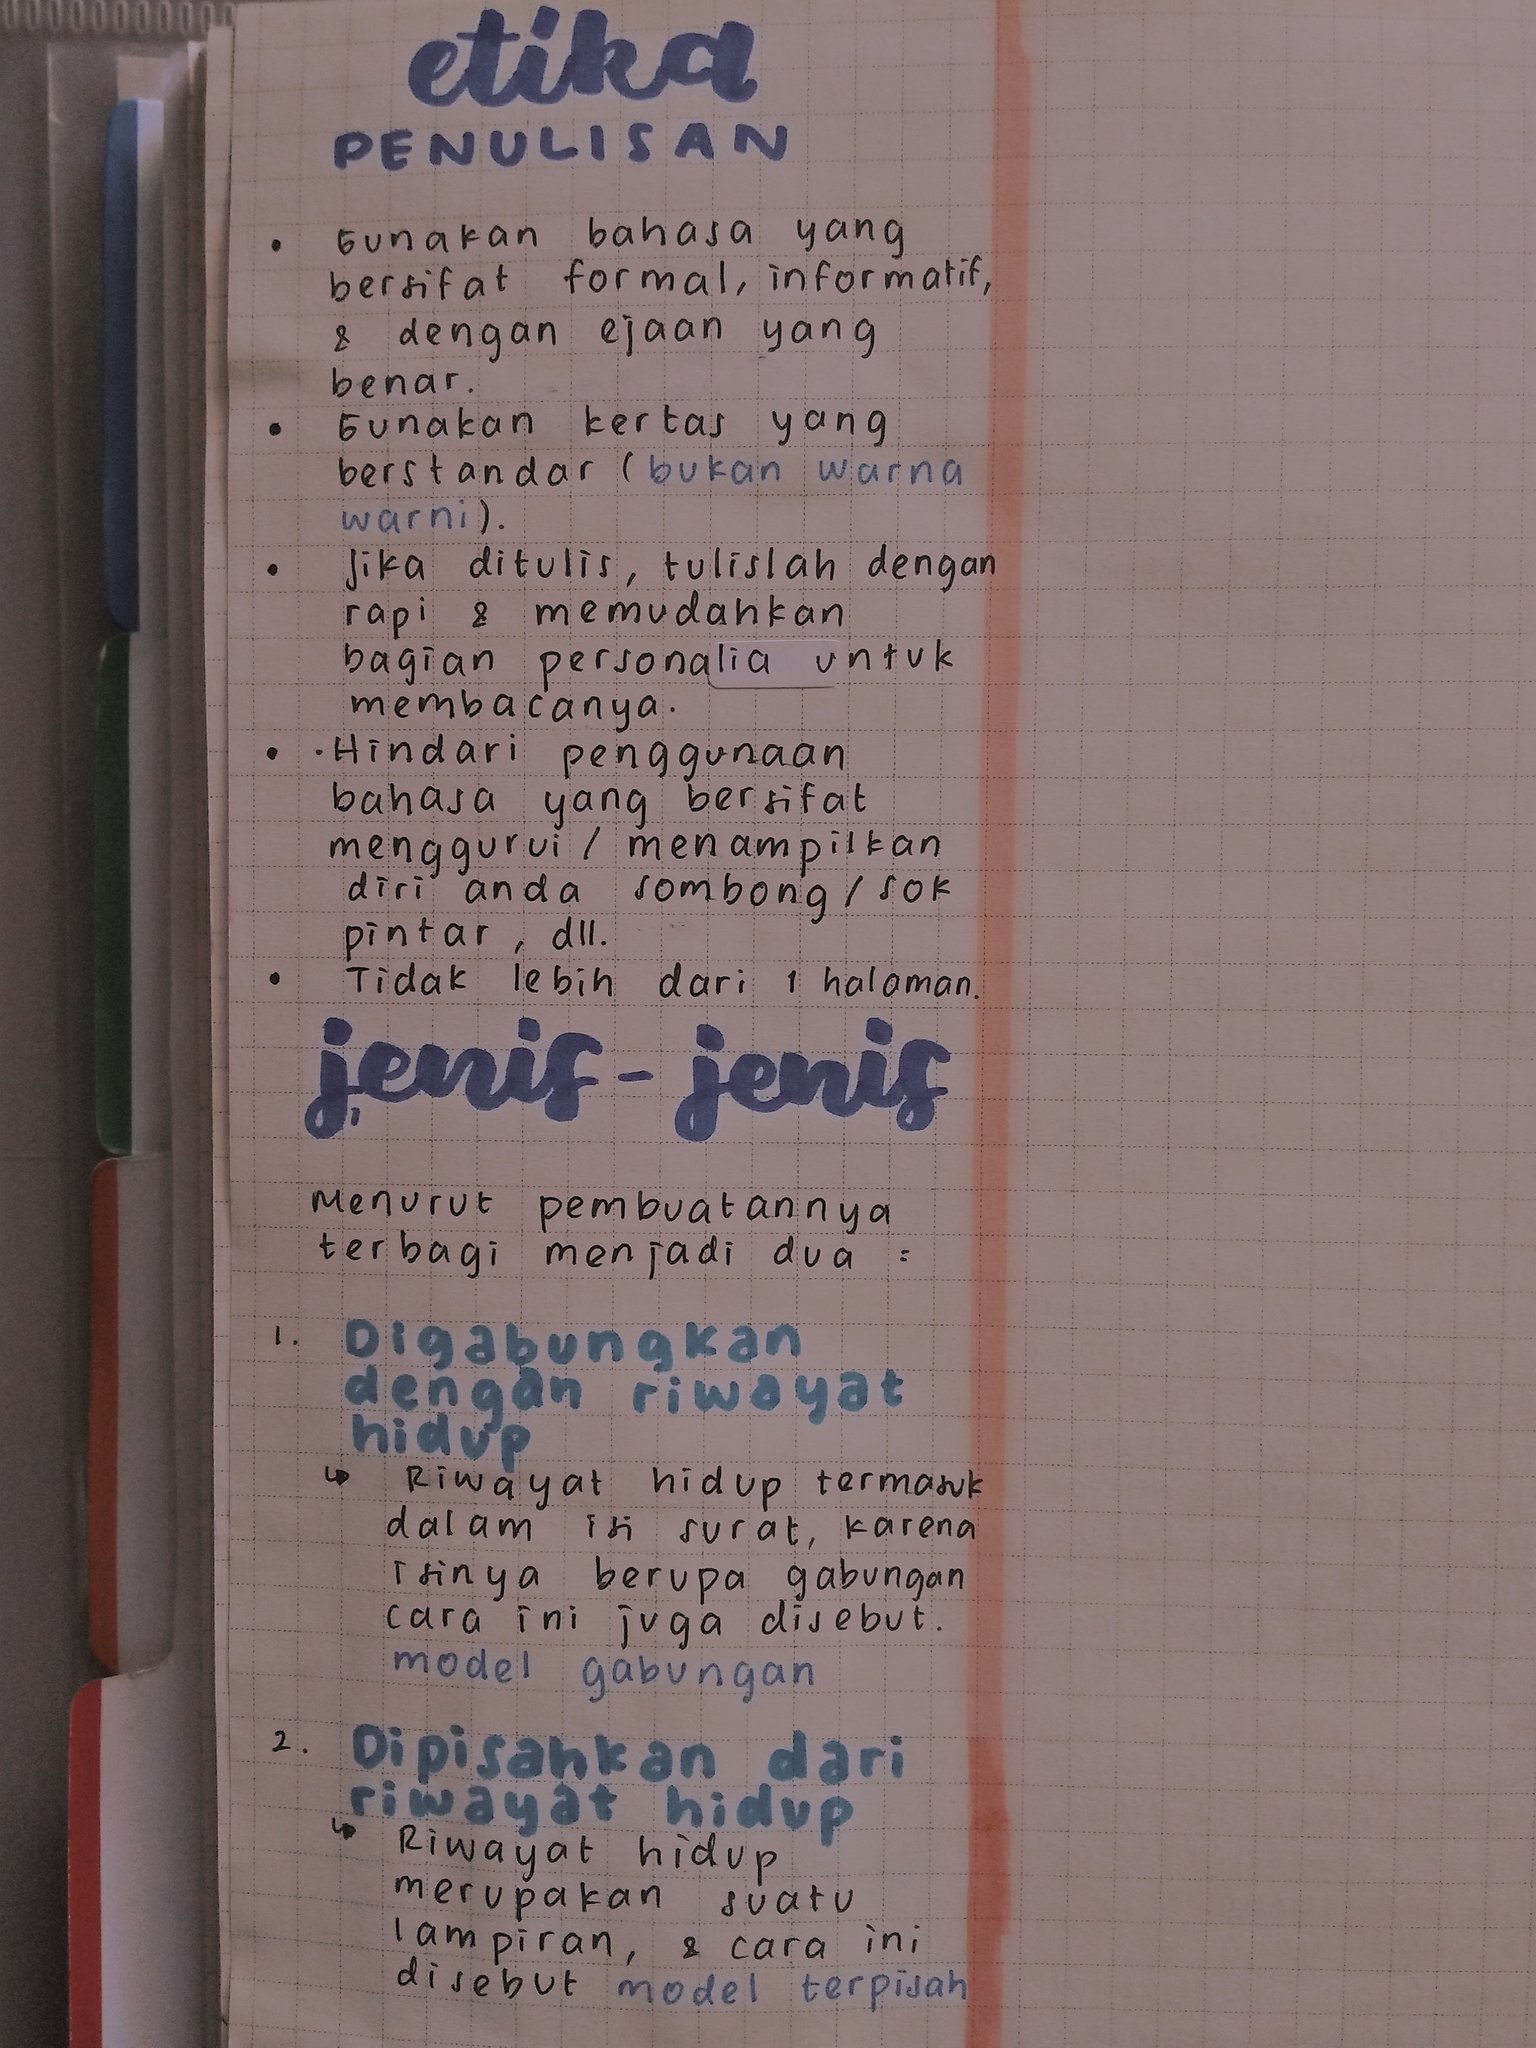 etika
PENULISAN
• Gunakan bahasa yang
bersifat formal, informatif,
& dengan ejaan yang
benar.
• Gunakan kertas yang
berstandar (bukan warna
warni).
• Jika ditulis, tulislah dengan
rapi & memudahkan
bagian personalia untuk
membacanya.
• Hindari penggunaan
bahasa yang bersifat
menggurui / menampilkan
diri anda sombong / sok
pintar, dll.
• Tidak lebih dari 1 halaman.
jenis - jenis
Menurut pembuatannya
terbagi menjadi dua :
1. Digabungkan
dengan riwayat
hidup
↳ Riwayat hidup termasuk
dalam isi surat, karena
isinya berupa gabungan
cara ini juga disebut.
model gabungan
2. Dipisahkan dari
riwayat hidup
↳ Riwayat hidup
merupakan suatu
lampiran, & cara ini
disebut model terpisah